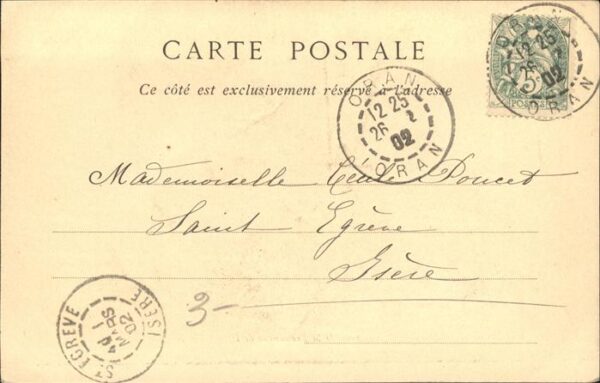 CARTE POSTALE
Ce côté est exclusivement réservé à l'adresse
ORAN
12 25
26 2
02
ORAN
ORAN
12 25
26 2
02
ORAN
5
POSTES
Mademoiselle Poncet
Saint Egrève
Isère
ST EGREVE
4 1
MARS
02
ISERE
3-